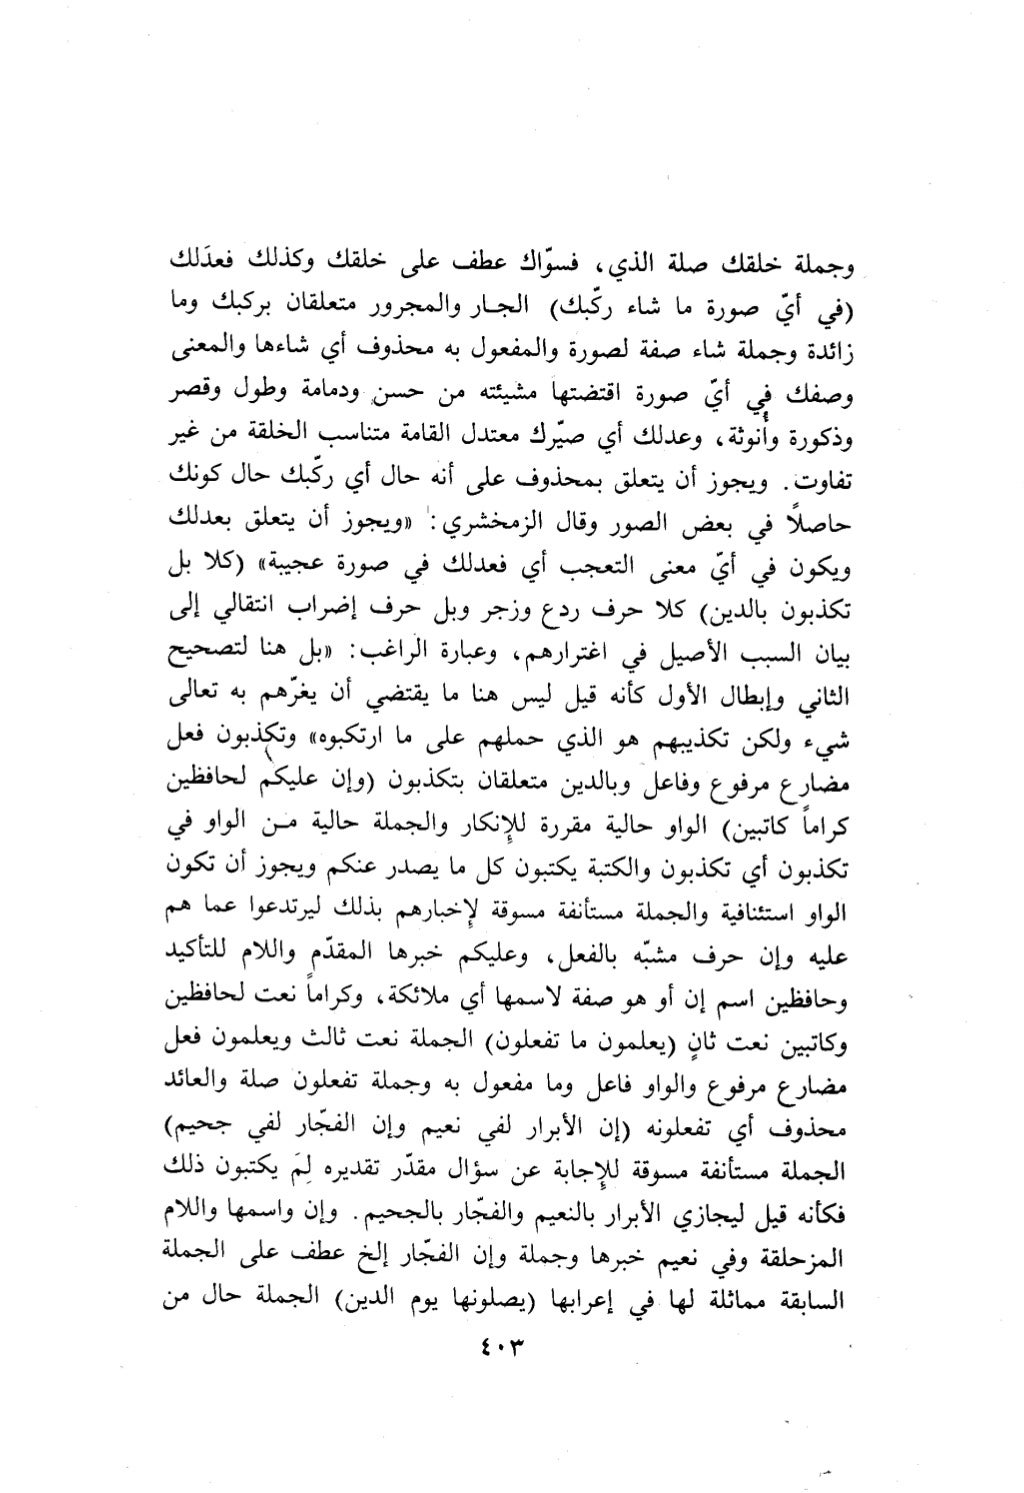 وجملة خلقك صلة الذي، فسوّاك عطف على خلقك وكذلك فعدَلك
(في أيّ صورة ما شاء ركّبك) الجار والمجرور متعلقان بركبك وما
زائدة وجملة شاء صفة لصورة والمفعول به محذوف أي شاءها والمعنى
وصفك في أيّ صورة اقتضتها مشيئته من حسن ودمامة وطول وقصر
وذكورة وأُنوثة، وعدلك أي صيّرك معتدل القامة متناسب الخلقة من غير
تفاوت. ويجوز أن يتعلق بمحذوف على أنه حال أي ركّبك حال كونك
حاصلاً في بعض الصور وقال الزمخشري: «ويجوز أن يتعلق بعدلك
ويكون في أيّ معنى التعجب أي فعدلك في صورة عجيبة» (كلا بل
تكذبون بالدين) كلا حرف ردع وزجر وبل حرف إضراب انتقالي إلى
بيان السبب الأصيل في اغترارهم، وعبارة الراغب: «بل هنا لتصحيح
الثاني وإبطال الأول كأنه قيل ليس هنا ما يقتضي أن يغرّهم به تعالى
شيء ولكن تكذيبهم هو الذي حملهم على ما ارتكبوه» وتكذبون فعل
مضارع مرفوع وفاعل وبالدين متعلقان بتكذبون (وإن عليكم لحافظين
كراماً كاتبين) الواو حالية مقررة للإنكار والجملة حالية من الواو في
تكذبون أي تكذبون والكتبة يكتبون كل ما يصدر عنكم ويجوز أن تكون
الواو استئنافية والجملة مستأنفة مسوقة لإخبارهم بذلك ليرتدعوا عما هم
عليه وإن حرف مشبّه بالفعل، وعليكم خبرها المقدّم واللام للتأكيد
وحافظين اسم إن أو هو صفة لاسمها أي ملائكة، وكراماً نعت لحافظين
وكاتبين نعت ثانٍ (يعلمون ما تفعلون) الجملة نعت ثالث ويعلمون فعل
مضارع مرفوع والواو فاعل وما مفعول به وجملة تفعلون صلة والعائد
محذوف أي تفعلونه (إن الأبرار لفي نعيم وإن الفجّار لفي جحيم)
الجملة مستأنفة مسوقة للإجابة عن سؤال مقدّر تقديره لِمَ يكتبون ذلك
فكأنه قيل ليجازي الأبرار بالنعيم والفجّار بالجحيم. وإن واسمها واللام
المزحلقة وفي نعيم خبرها وجملة وإن الفجّار إلخ عطف على الجملة
السابقة مماثلة لها في إعرابها (يصلونها يوم الدين) الجملة حال من
٤٠٣